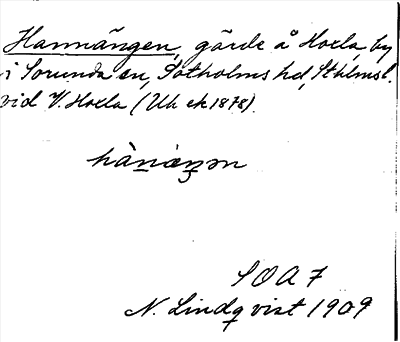 Hannängen, gärde å Hoxla by
i Sorunda sn, Sotholms hd, Sthlms l.
vid V. Hoxla (Uh ek 1878).
hànæ̀ŋən
SOA 7
N. Lindqvist 1909